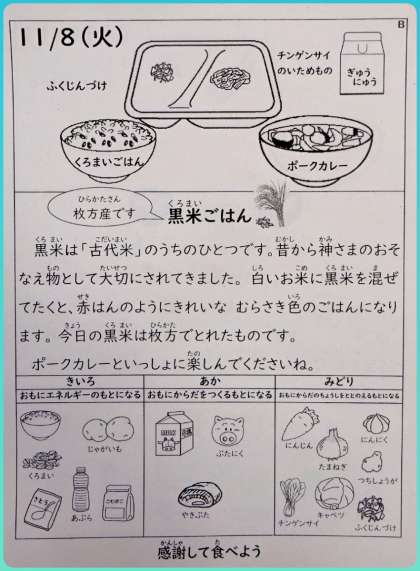 B
11/8(火)
ふくじんづけ
チンゲンサイ
のいためもの
ぎゅう
にゅう
くろまいごはん
ポークカレー
ひらかたさん
枚方産です
くろまい
黒米ごはん
くろまい こだいまい むかし かみ
黒米は「古代米」のうちのひとつです。昔から神さまのおそ
もの たいせつ しろ こめ くろまい ま
なえ物として大切にされてきました。白いお米に黒米を混ぜ
せき いろ
てたくと、赤はんのようにきれいな むらさき色のごはんになり
きょう くろまい ひらかた
ます。今日の黒米は枚方でとれたものです。
たの
ポークカレーといっしょに楽しんでくださいね。
きいろ
おもにエネルギーのもとになる
あか
おもにからだをつくるもとになる
みどり
おもにからだのちょうしをととのえるもとになる
じゃがいも
くろまい
さとう
あぶら
こむぎこ
ぶたにく
やきぶた
にんじん
たまねぎ
にんにく
つちしょうが
チンゲンサイ
キャベツ
ふくじんづけ
かんしゃ た
感謝して食べよう